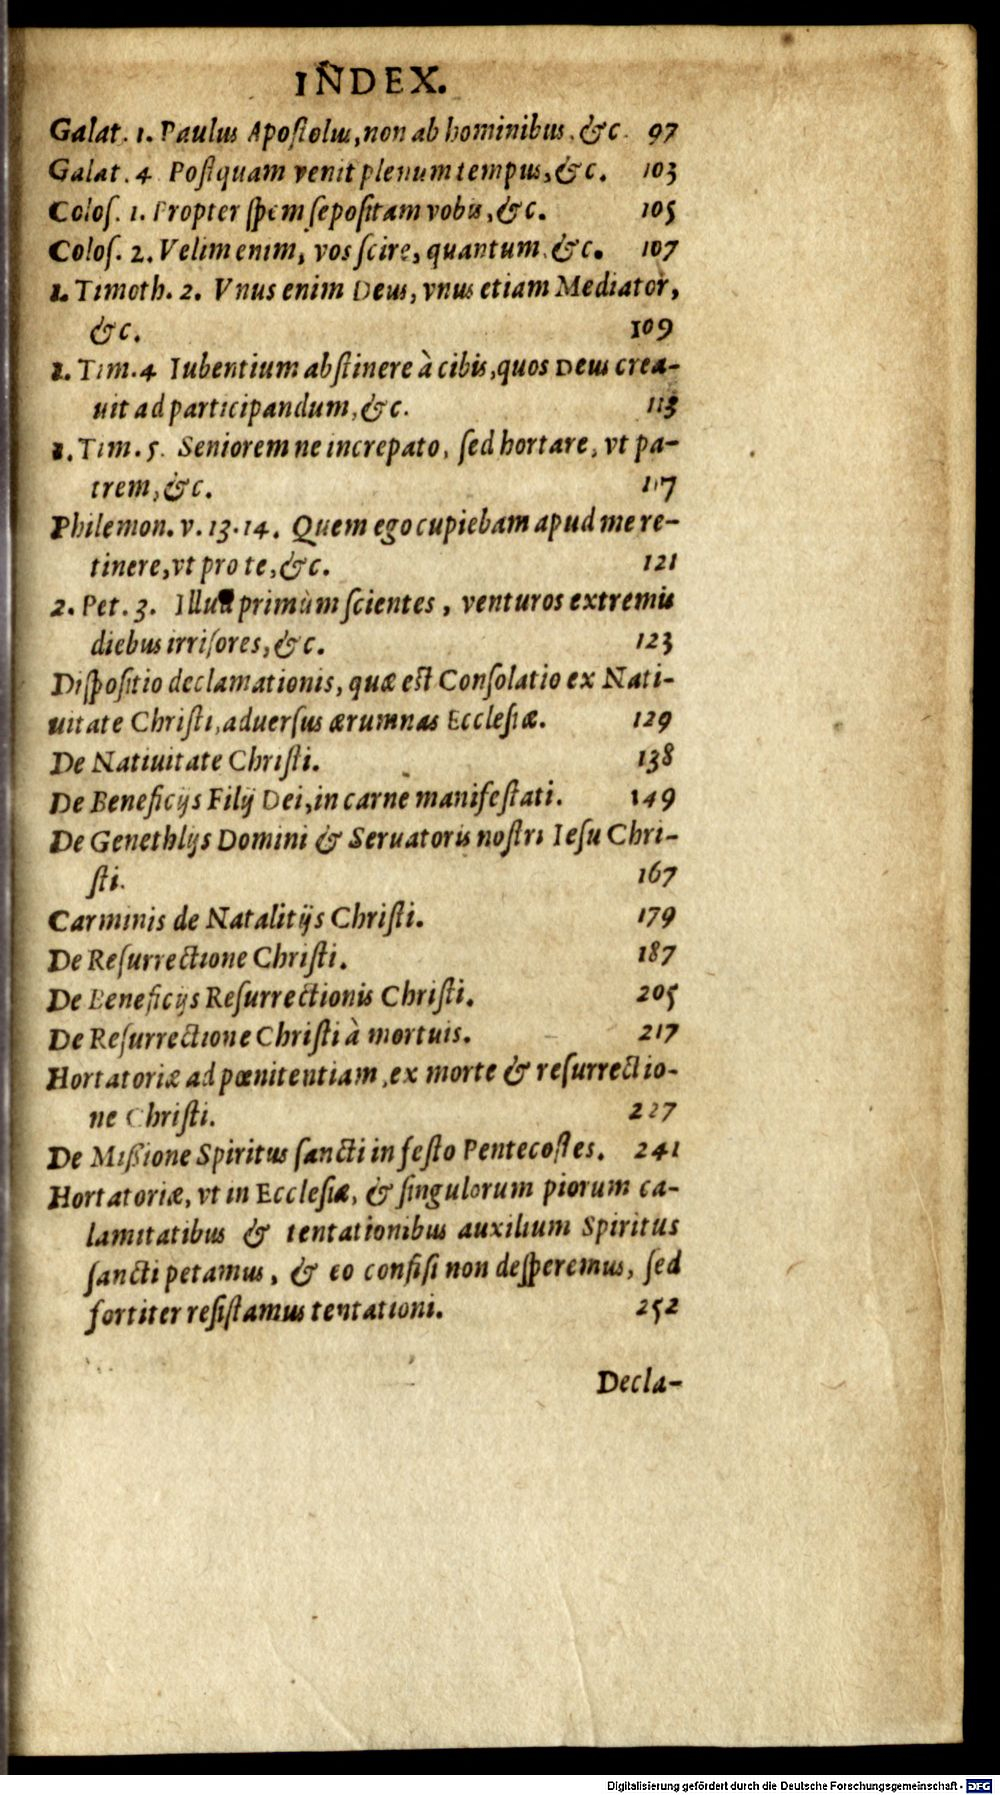 INDEX.
Galat. 1. Paulus Apostolus, non ab hominibus, &c. 97
Galat. 4 Postquam venit plenum tempus, &c. 103
Colos. 1. Propter spem sepositam vobis, &c. 105
Colos. 2. Velim enim, vos scire, quantum, &c. 107
1. Timoth. 2. Vnus enim Deus, vnus etiam Mediator,
&c. 109
1. Tim. 4 Iubentium abstinere à cibis, quos Deus crea-
uit ad participandum, &c. 113
1. Tim. 5. Seniorem ne increpato, sed hortare, vt pa-
trem, &c. 117
Philemon. v. 13. 14. Quem ego cupiebam apud me re-
tinere, vt pro te, &c. 121
2. Pet. 3. Illud primùm scientes, venturos extremis
diebus irrisores, &c. 123
Dispositio declamationis, quæ est Consolatio ex Nati-
uitate Christi, aduersus ærumnas Ecclesiæ. 129
De Natiuitate Christi. 138
De Beneficijs Filij Dei, in carne manifestati. 149
De Genethlijs Domini & Seruatoris nostri Iesu Chri-
sti. 167
Carminis de Natalitijs Christi. 179
De Resurrectione Christi. 187
De Beneficijs Resurrectionis Christi. 205
De Resurrectione Christi à mortuis. 217
Hortatoriæ ad pœnitentiam, ex morte & resurrectio-
ne Christi. 227
De Mißione Spiritus sancti in festo Pentecostes. 241
Hortatoriæ, vt in Ecclesiæ, & singulorum piorum ca-
lamitatibus & tentationibus auxilium Spiritus
sancti petamus, & eo confisi non desperemus, sed
fortiter resistamus tentationi. 252
Decla-
Digitalisierung gefördert durch die Deutsche Forschungsgemeinschaft - DFG